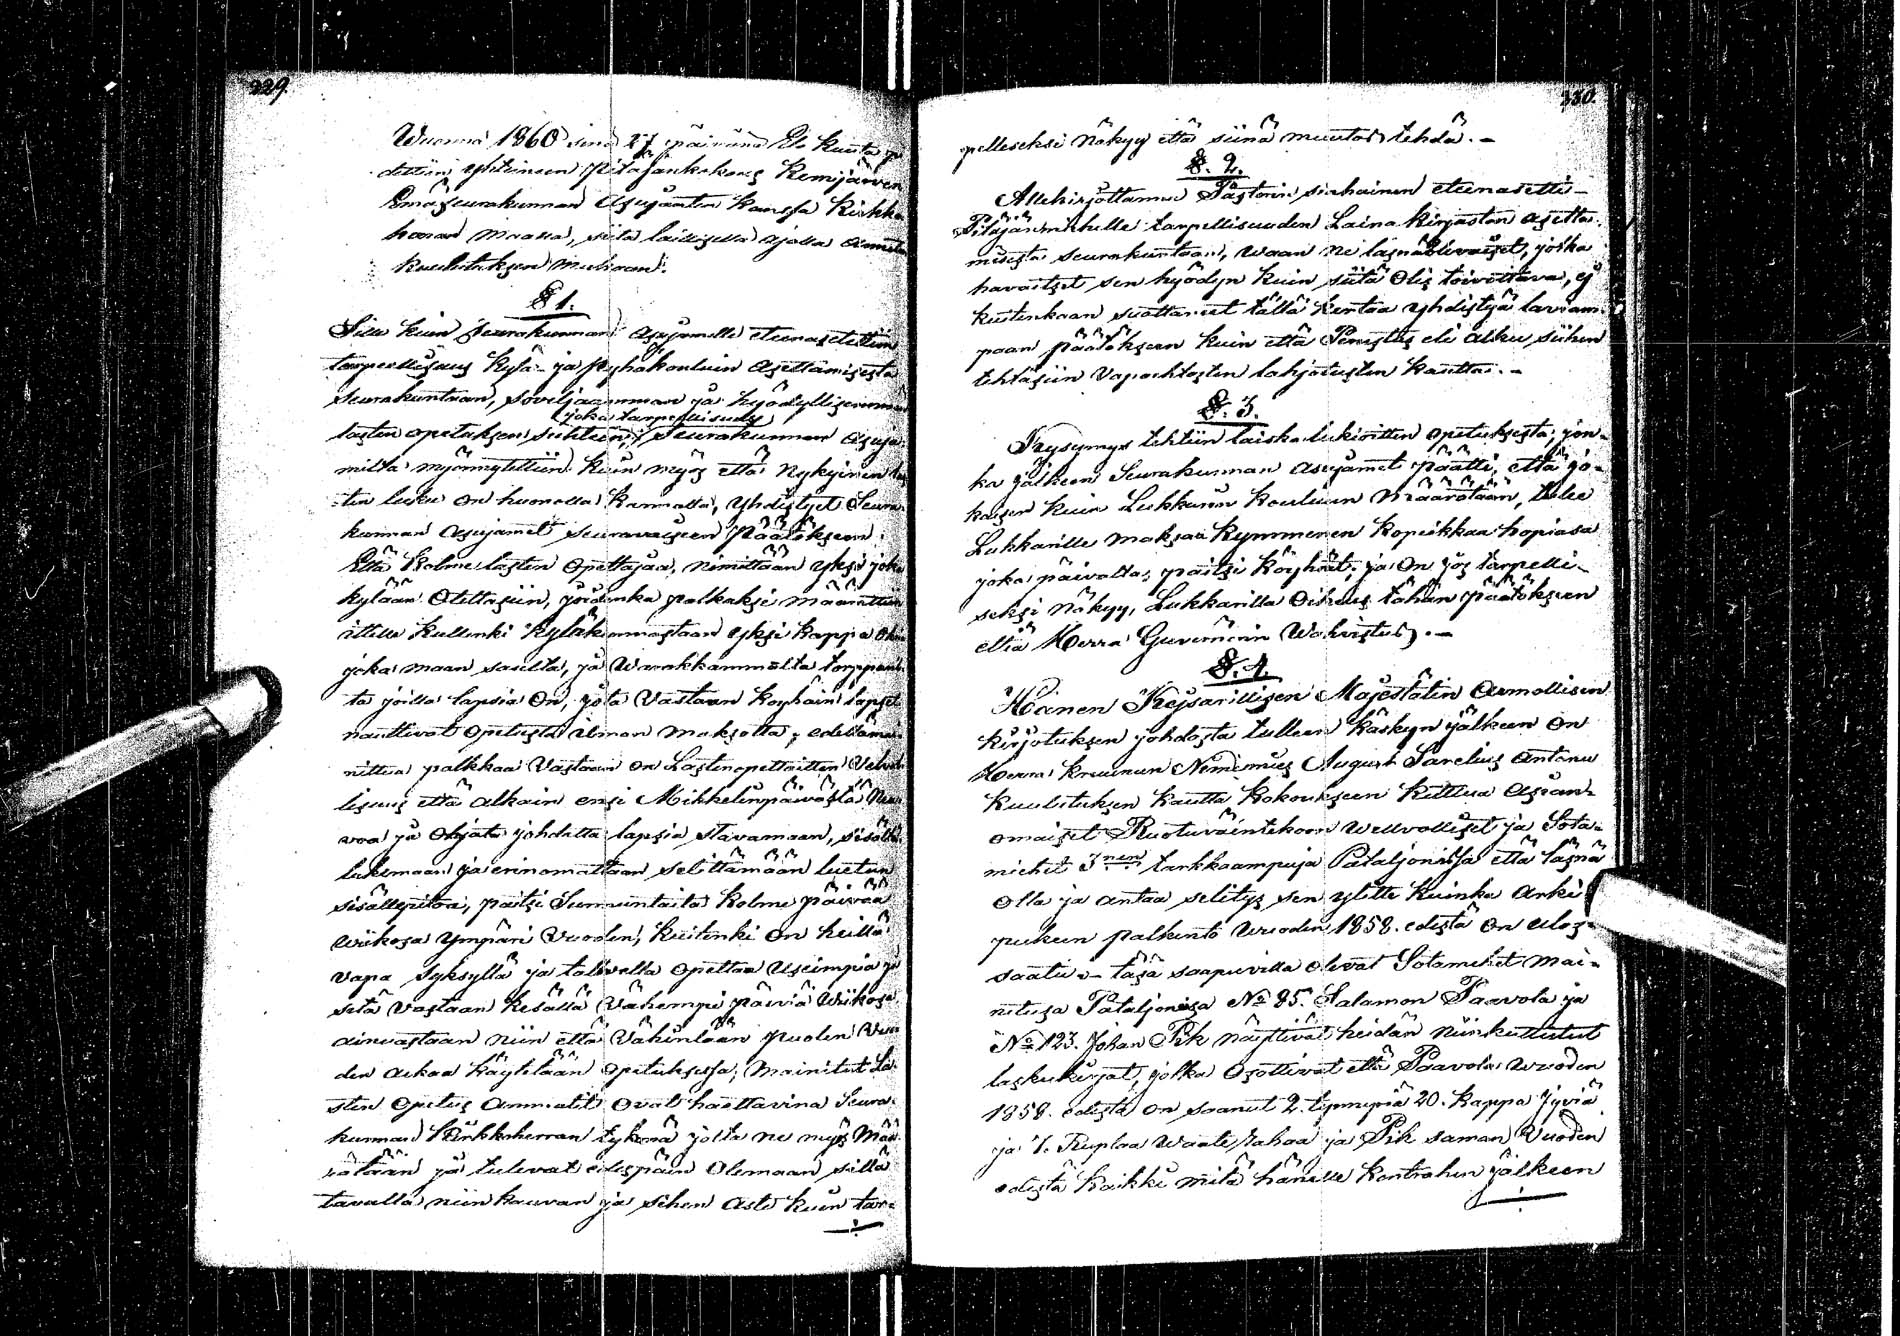 229.
Wuonna 1860 sinä 27 päivänä Elo kuuta pi
dettiin yhteinen Pitäjänkokous Kemijärven
Emäseurakunnan Asujanten kanssa Kirkko
herran maalla, siitä laillisella ajalla annetun
kuulutuksen mukaan.
§ 1.
Sille kuin Seurakunnan Asujamille eteenasetettiin
tarpeellisuus Kylä- ja Pyhäkouluin Asettamisesta
Seurakuntaan, soveljaamman ja hyödyllisemmän
lasten opetuksen suhteen, joka tarpellisuus Seurakunnan Asuja-
milta myönnytettiin kuin myös että nykyinen las
ten luku on huonolla kannalla, yhdistyit Seura-
kunnan Asujamet seuraavaiseen Päätökseen:
Että Kolme lasten Opettajaa, nimittäin yksi joka
kylään Otettasiin, joidenka palkaksi määrättiin
itselle kullenki Kyläkunnastaan yksi kappa ohria
joka maan saulta, ja Warakkammilta torppareil-
ta joilla lapsia On, jota Vastaan köyhäin lapset
nauttivat Opetusta ilman maksotta, edellämai-
nittua palkkaa Vastaan on Lastenopettaitten Velvol-
lisuus että alkain ensi Mikkelinpäivästä Neu-
voa ja Ohjata johdatta lapsia stavamaan, sisältä
lukemaan ja erinomattain selittämään luetun
sisällepitoa, paitsi Sunnuntaita Kolme päivää
wiikosa ympäri Vuoden, kuitenki On heillä
vapa syksyllä ja talvella opettaa Useimpia ja
sitä Vastaan Kesällä Vähempi päiviä Wiikosa
ainoastaan niin että Vähintään puolen Vuo-
den aikaa käytetään Opetuksessa; Mainitut La-
sten Opetus Ammatit Ovat haettavina Seura-
kunnan Kirkkoherran tykönä jolta ne myös Mää-
rätään ja tulevat edespäin Olemaan sillä
tavalla niin kauvan ja siihen asti kuin tar-
230.
pelliseksi näkyy että siinä muutos tehdä. –
§. 2.
Allekirjottamu Pastorin sijahainen eteenasetti
Pitäjänmiehille tarpellisuuden Laina kirjaston asetta-
misesta Seurakuntaan, waan ne läsnäolevaiset, jotka
havaitset sen hyödyn kuin siitä Olis toivottava, ej
kuitenkaan suottaneet tällä kertaa yhdistyä laviam-
paan päätökseen kuin että Perustus eli alku siihen
tehtäsiin Vapaehtosten lahjotusten kautta. –
§. 3.
Kysymys tehtiin laiska lukioitten opetuksesta, jon-
ka jälkeen Seurakunnan asujamet päätti, että jo-
kaisen kuin Lukkarin kouluun Määrätään, tulee
Lukkarille maksaa Kymmenen kopeikkaa hopiasa
joka päivältä, paitsi Köyhät; ja On jos tarpelli-
seksi näkyy, Lukkarilla Oikeus tähän päätökseen
etsiä Herra Guvernörin Wahvistus. –
§. 4.
Hänen Keisarillisen Majestätin Armollisen
kirjotuksen johdosta tulleen käskyn jälkeen On
Herra kruunun Nimismies August Sarelius Antanu
kuulutuksen kautta Kokoukseen kuttua Asian-
omaiset Ruotuväintekoon Wellvolliset ja Sota-
miehet 3nen tarkkaampuja Pataljonissa että läsnä
olla ja antaa selitys sen ylitte kuinka Arki
pukeen palkinto Wuoden 1858. edestä on ulos-
saatu – täsä saapuvilla olevat Sotamiehet mai-
nitusa Pataljonisa No 85. Salamon Paavola ja
No 123. Johan Pik näyttivät heidän niinkuttutut
laskukirjat, jotka Osottivat että Paavola wuoden
1858. edestä on saanut 2. tynnyriä 20. kappa Jyviä
ja 7. Ruplaa Waate rahaa ja Pik saman Vuoden
edestä kaikki mitä hänelle kontrahin jälkeen